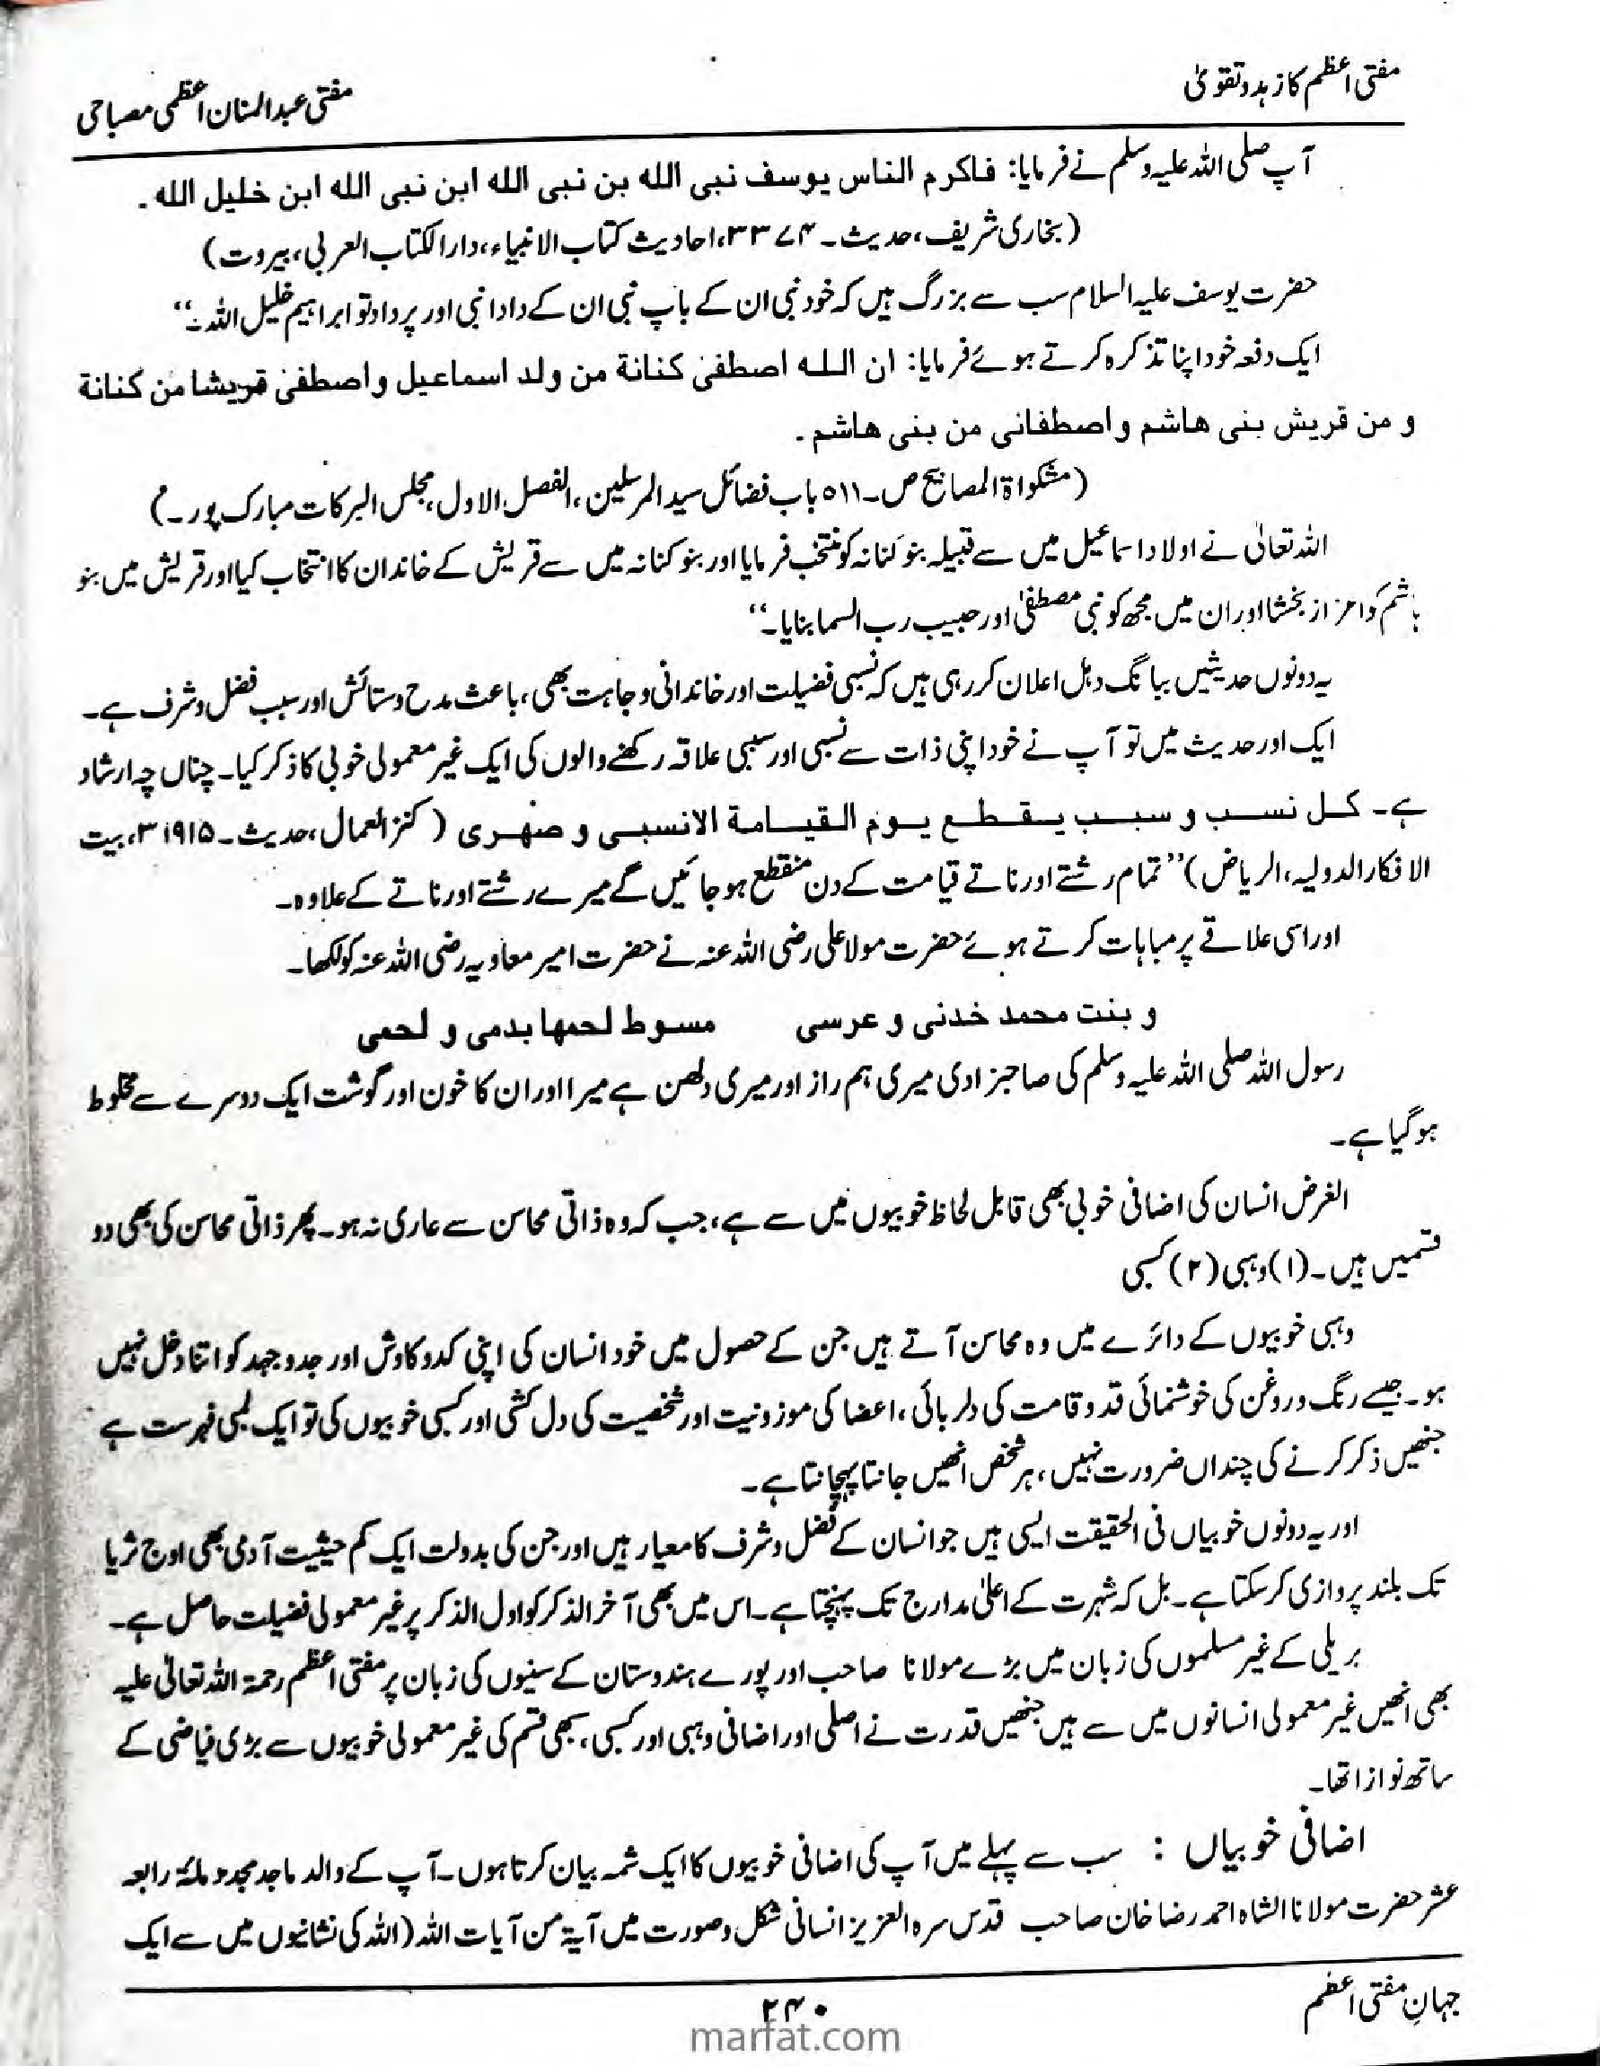 مفتی اعظم کا زہد و تقویٰ
مفتی عبدالمنان اعظمی مصباحی
آپ صلی اللہ علیہ وسلم نے فرمایا: فاکرم الناس یوسف نبی اللہ بن نبی اللہ ابن نبی اللہ ابن خلیل اللہ ۔
(بخاری شریف، حدیث۔ ۳۳۷۴، احادیث کتاب الانبیاء، دار الکتاب العربی، بیروت)
حضرت یوسف علیہ السلام سب سے بزرگ ہیں کہ خود نبی ان کے باپ نبی ان کے دادا نبی اور پردادا تو ابراہیم خلیل اللہ۔“
ایک دفعہ خود اپنا تذکرہ کرتے ہوئے فرمایا: ان اللہ اصطفیٰ کنانة من ولد اسماعیل و اصطفیٰ قریشا من کنانة
و من قریش بنی ھاشم و اصطفانی من بنی ھاشم ۔
(مشکواۃ المصابیح ص۔ ۵۱۱ باب فضائل سید المرسلین، الفصل الاول، مجلس البرکات مبارک پور۔)
اللہ تعالیٰ نے اولاد اسماعیل میں سے قبیلہ بنو کنانہ کو منتخب فرمایا اور بنو کنانہ میں سے قریش کے خاندان کا انتخاب کیا اور قریش میں بنو
ہاشم کو اعزاز بخشا اور ان میں مجھ کو نبی مصطفیٰ اور حبیب رب السما بنایا۔“
یہ دونوں حدیثیں ببانگ دہل اعلان کر رہی ہیں کہ نسبی فضیلت اور خاندانی وجاہت بھی، باعث مدح و ستائش اور سبب فضل و شرف ہے۔
ایک اور حدیث میں تو آپ نے خود اپنی ذات سے نسبی اور سببی علاقہ رکھنے والوں کی ایک غیر معمولی خوبی کا ذکر کیا۔ چناں چہ ارشاد
ہے۔ کل نسب و سبب یقطع یوم القیامة الانسبی و صھری (کنز العمال، حدیث۔ ۳۱۹۱۵، بیت
الافکار الدولیہ، الریاض)”تمام رشتے اور ناتے قیامت کے دن منقطع ہو جائیں گے میرے رشتے اور ناتے کے علاوہ۔
اور اسی علاقے پر مباہات کرتے ہوئے حضرت مولا علی رضی اللہ عنہ نے حضرت امیر معاویہ رضی اللہ عنہ کو لکھا۔
و بنت محمد خدنی و عرسی مسوط لحمھا بدمی و لحمی
رسول اللہ صلی اللہ علیہ وسلم کی صاحبزادی میری ہم راز اور میری دلھن ہے میرا اور ان کا خون اور گوشت ایک دوسرے سے مخلوط
ہو گیا ہے۔
الغرض انسان کی اضافی خوبی بھی قابل لحاظ خوبیوں میں سے ہے، جب کہ وہ ذاتی محاسن سے عاری نہ ہو۔ پھر ذاتی محاسن کی بھی دو
قسمیں ہیں۔ (۱) وہبی (۲) کسبی
وہبی خوبیوں کے دائرے میں وہ محاسن آتے ہیں جن کے حصول میں خود انسان کی اپنی کد و کاوش اور جد و جہد کو اتنا دخل نہیں
ہو۔ جیسے رنگ و روغن کی خوشنمائی قد و قامت کی دلربائی، اعضا کی موزونیت اور شخصیت کی دل کشی اور کسبی خوبیوں کی تو ایک لمبی فہرست ہے
جنھیں ذکر کرنے کی چنداں ضرورت نہیں، ہر شخص انھیں جانتا پہچانتا ہے۔
اور یہ دونوں خوبیاں فی الحقیقت ایسی ہیں جو انسان کے فضل و شرف کا معیار ہیں اور جن کی بدولت ایک کم حیثیت آدمی بھی اوج ثریا
تک بلند پروازی کر سکتا ہے۔ بل کہ شہرت کے اعلیٰ مدارج تک پہنچتا ہے۔ اس میں بھی آخر الذکر کو اول الذکر پر غیر معمولی فضیلت حاصل ہے۔
بریلی کے غیر مسلموں کی زبان میں بڑے مولانا صاحب اور پورے ہندوستان کے سنیوں کی زبان پر مفتی اعظم رحمۃ اللہ تعالیٰ علیہ
بھی انھیں غیر معمولی انسانوں میں سے ہیں جنھیں قدرت نے اصلی اور اضافی وہبی اور کسبی، سبھی قسم کی غیر معمولی خوبیوں سے بڑی فیاضی کے
ساتھ نوازا تھا۔
اضافی خوبیاں : سب سے پہلے میں آپ کی اضافی خوبیوں کا ایک شمہ بیان کرتا ہوں۔ آپ کے والد ماجد مجدد مائۃ رابعہ
عشر حضرت مولانا الشاہ احمد رضا خان صاحب قدس سرہ العزیز انسانی شکل و صورت میں آیۃ من آیات اللہ (اللہ کی نشانیوں میں سے ایک
جہانِ مفتی اعظم
۲۴۰
marfat.com